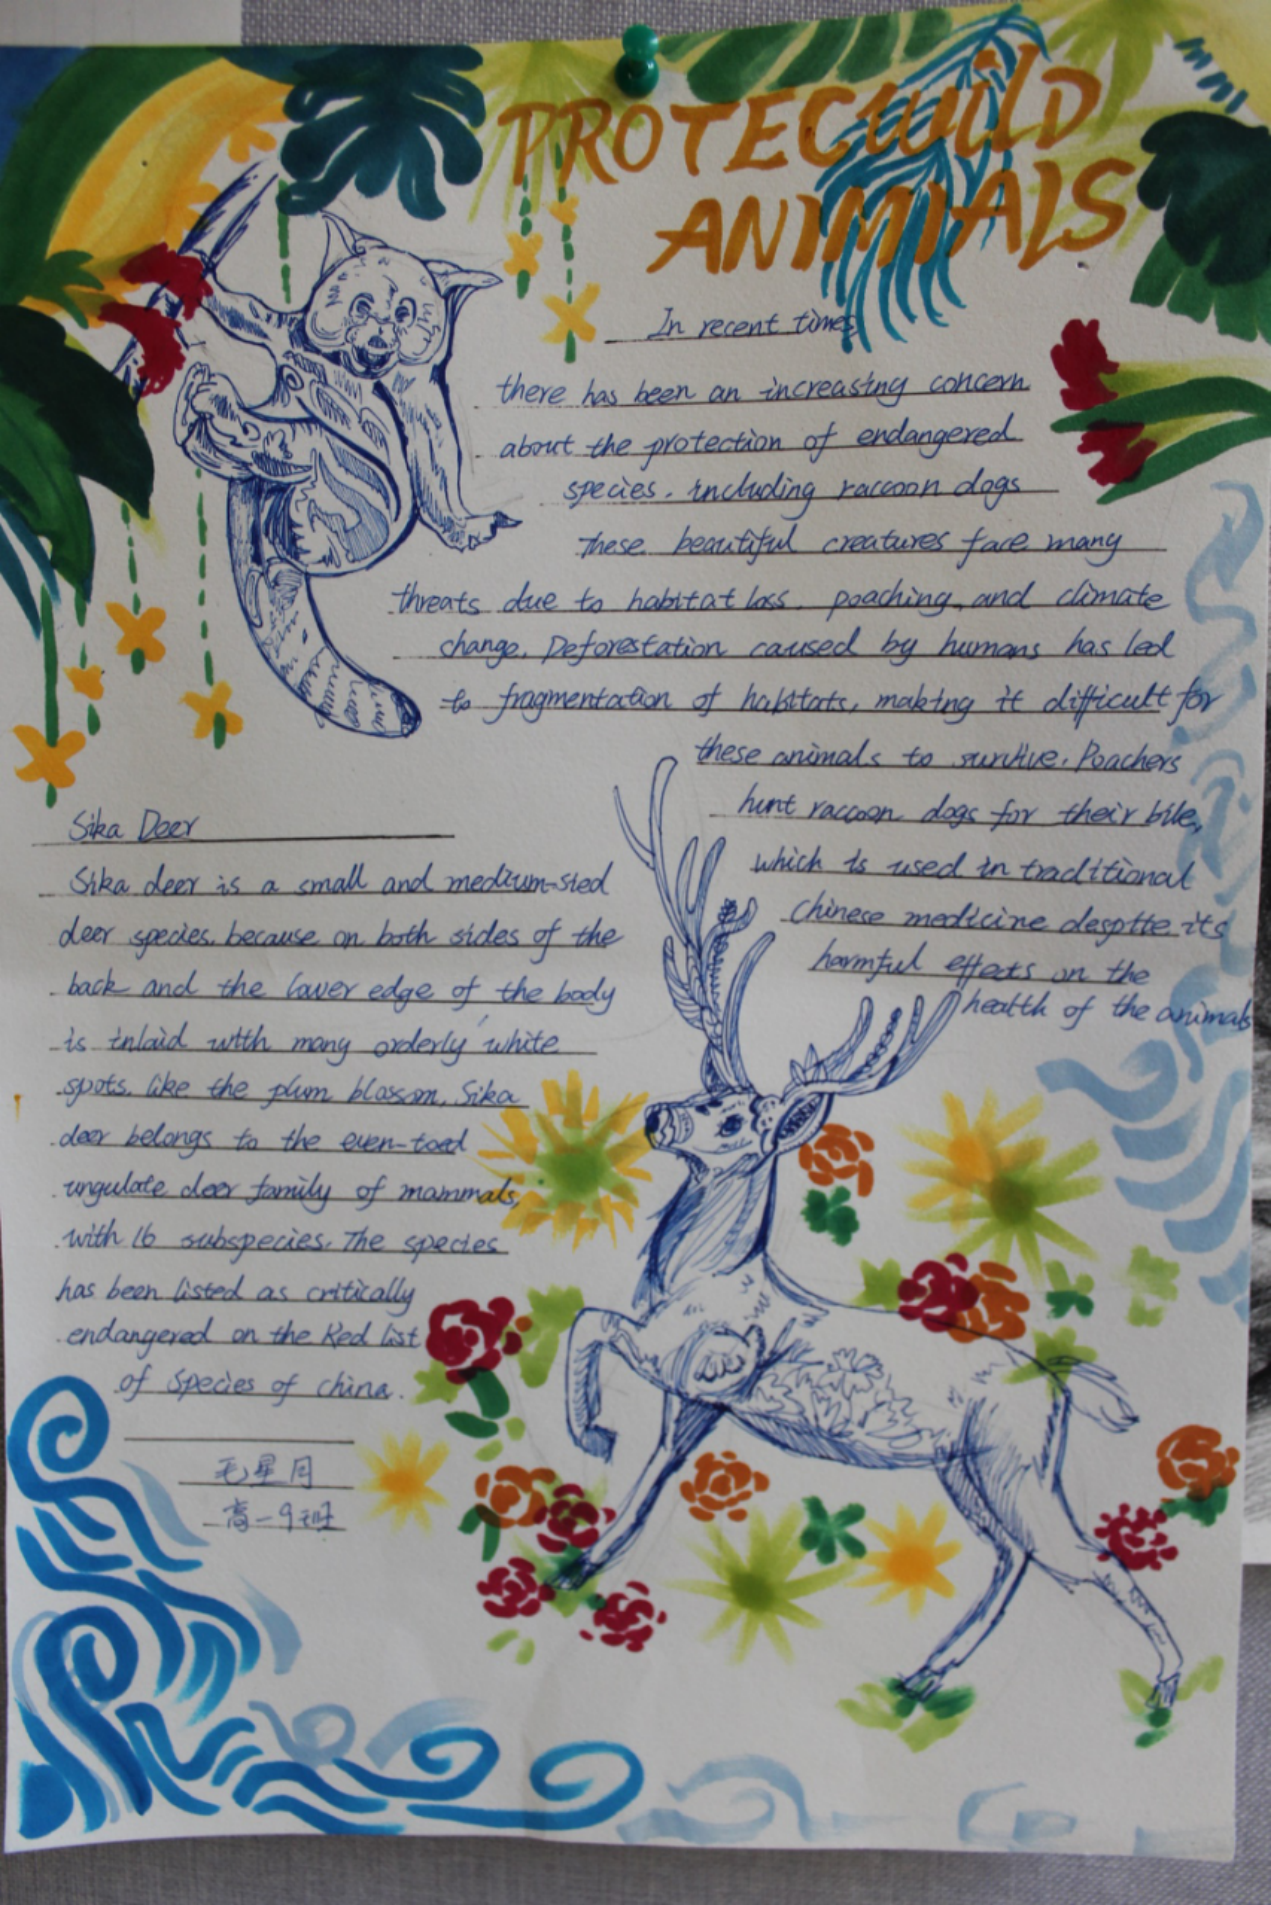 PROTECWILD
ANIMIALS
In recent times,
there has been an increasing concern
about the protection of endangered
species. including raccoon dogs
These beautiful creatures face many
threats due to habitat loss, poaching, and climate
change. Deforestation caused by humans has led
to fragmentation of habitats, making it difficult for
these animals to survive. Poachers
hunt raccoon dogs for their bile,
which is used in traditional
Chinese medicine despite its
harmful effects on the
health of the animals
Sika Deer
Sika deer is a small and medium-sied
deer species. because on both sides of the
back and the lower edge of the body
is inlaid with many orderly white
spots. like the plum blossom. Sika
deer belongs to the even-toed
ungulate deer family of mammals,
with 16 subspecies. The species
has been listed as critically
endangered on the Red list
of Species of china.
毛星月
高一9班